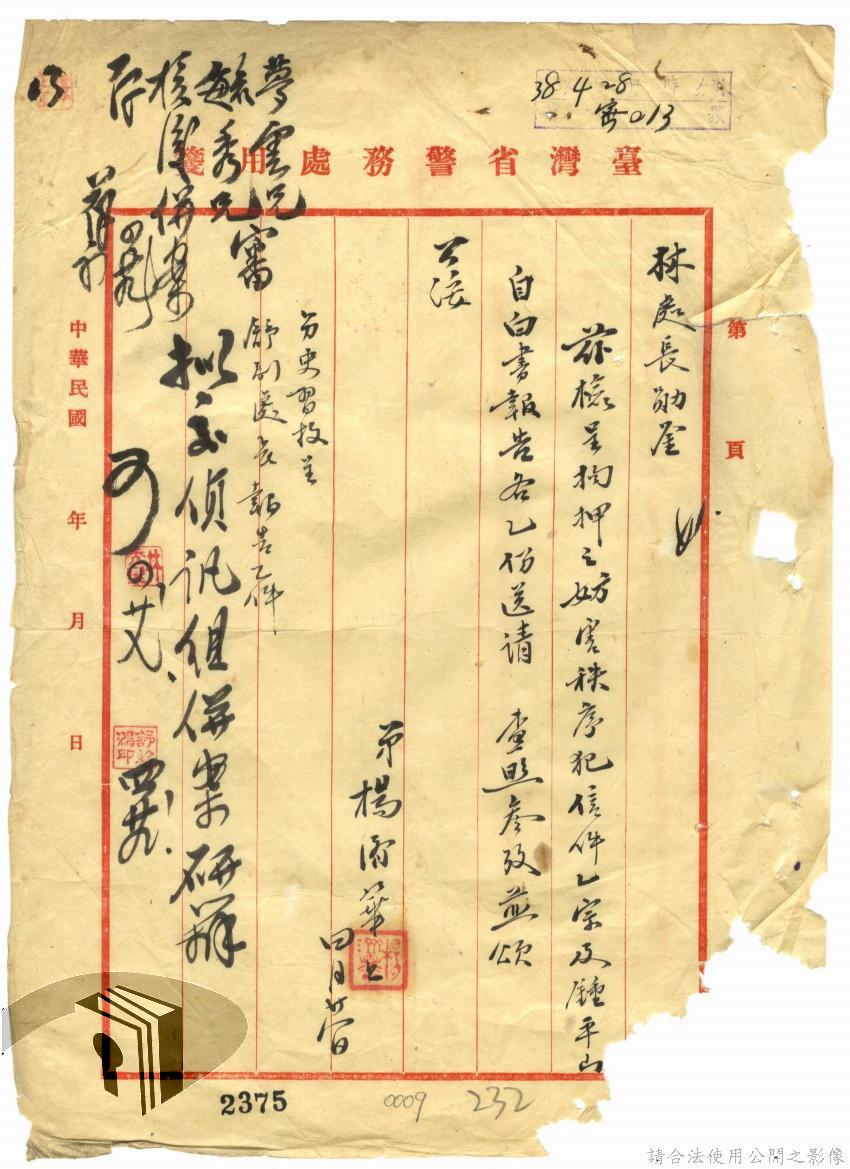 38 4 28
密013
臺灣省警務處用箋
第 頁
林處長勛鑒
茲檢呈拘押之妨害秩序犯信件乙宗及鍾平山
自白書報告各乙份送請 查照參攷並頌
公綏
弟楊
四月廿
舒副處長報告乙件
夢雲兄
秀兄審
核後併案
存
擬交偵訊組併案研辦
可
中華民國 年 月 日
2375
0009
232
請合法使用公開之影像